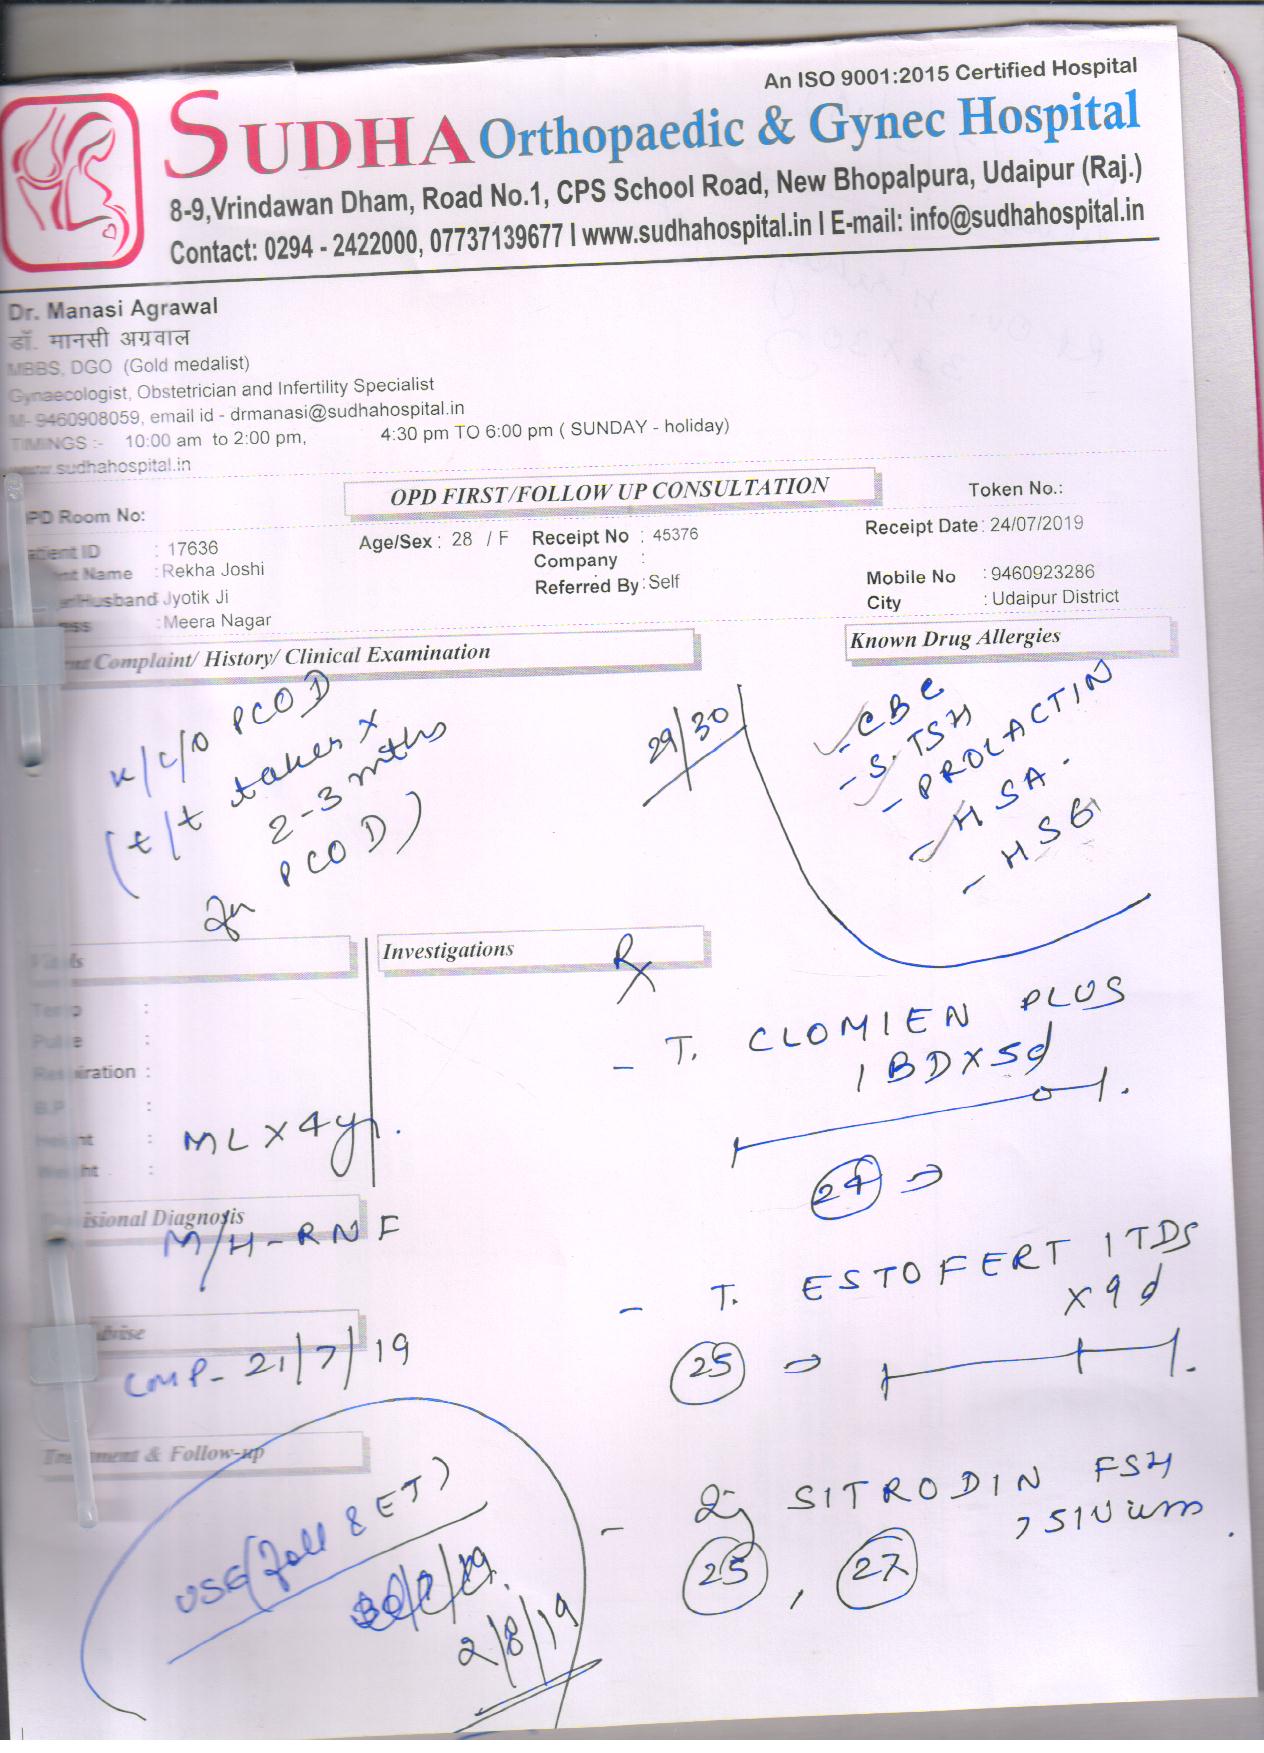 An ISO 9001:2015 Certified Hospital
SUDHA Orthopaedic & Gynec Hospital
8-9,Vrindawan Dham, Road No.1, CPS School Road, New Bhopalpura, Udaipur (Raj.)
Contact: 0294 - 2422000, 07737139677 I www.sudhahospital.in I E-mail: info@sudhahospital.in
Dr. Manasi Agrawal
डॉ. मानसी अग्रवाल
MBBS, DGO (Gold medalist)
Gynaecologist, Obstetrician and Infertility Specialist
M- 9460908059, email id - drmanasi@sudhahospital.in
TIMINGS :- 10:00 am to 2:00 pm, 4:30 pm TO 6:00 pm ( SUNDAY - holiday)
www.sudhahospital.in
OPD FIRST/FOLLOW UP CONSULTATION
Token No.:
PD Room No:
Age/Sex : 28 / F
Receipt No : 45376
Receipt Date : 24/07/2019
atient ID : 17636
Company :
nt Name : Rekha Joshi
Referred By : Self
Mobile No : 9460923286
er/Husband Jyotik Ji
City : Udaipur District
ess : Meera Nagar
nt Complaint/ History/ Clinical Examination
Known Drug Allergies
K/C/O PCOD
(t/t taken x
2-3 mths
for PCOD)
29/30
- CBC
- S. TSH
- PROLACTIN
- HSA.
- HSG
Vitals
Investigations
Rx
Temp :
Pulse :
Respiration :
B.P :
Height :
Weight :
- T. CLOMIEN PLUS
1 BD X 5d
24
ML X 4yr.
isional Diagnosis
M/H - RNF
- T. ESTOFERT 1 TDS
X 9d
25
dvise
LMP - 21/7/19
Treatment & Follow-up
USG (foll & ET)
2/8/19
- Inj SITRODIN FSH
75 IU i/m
25, 27